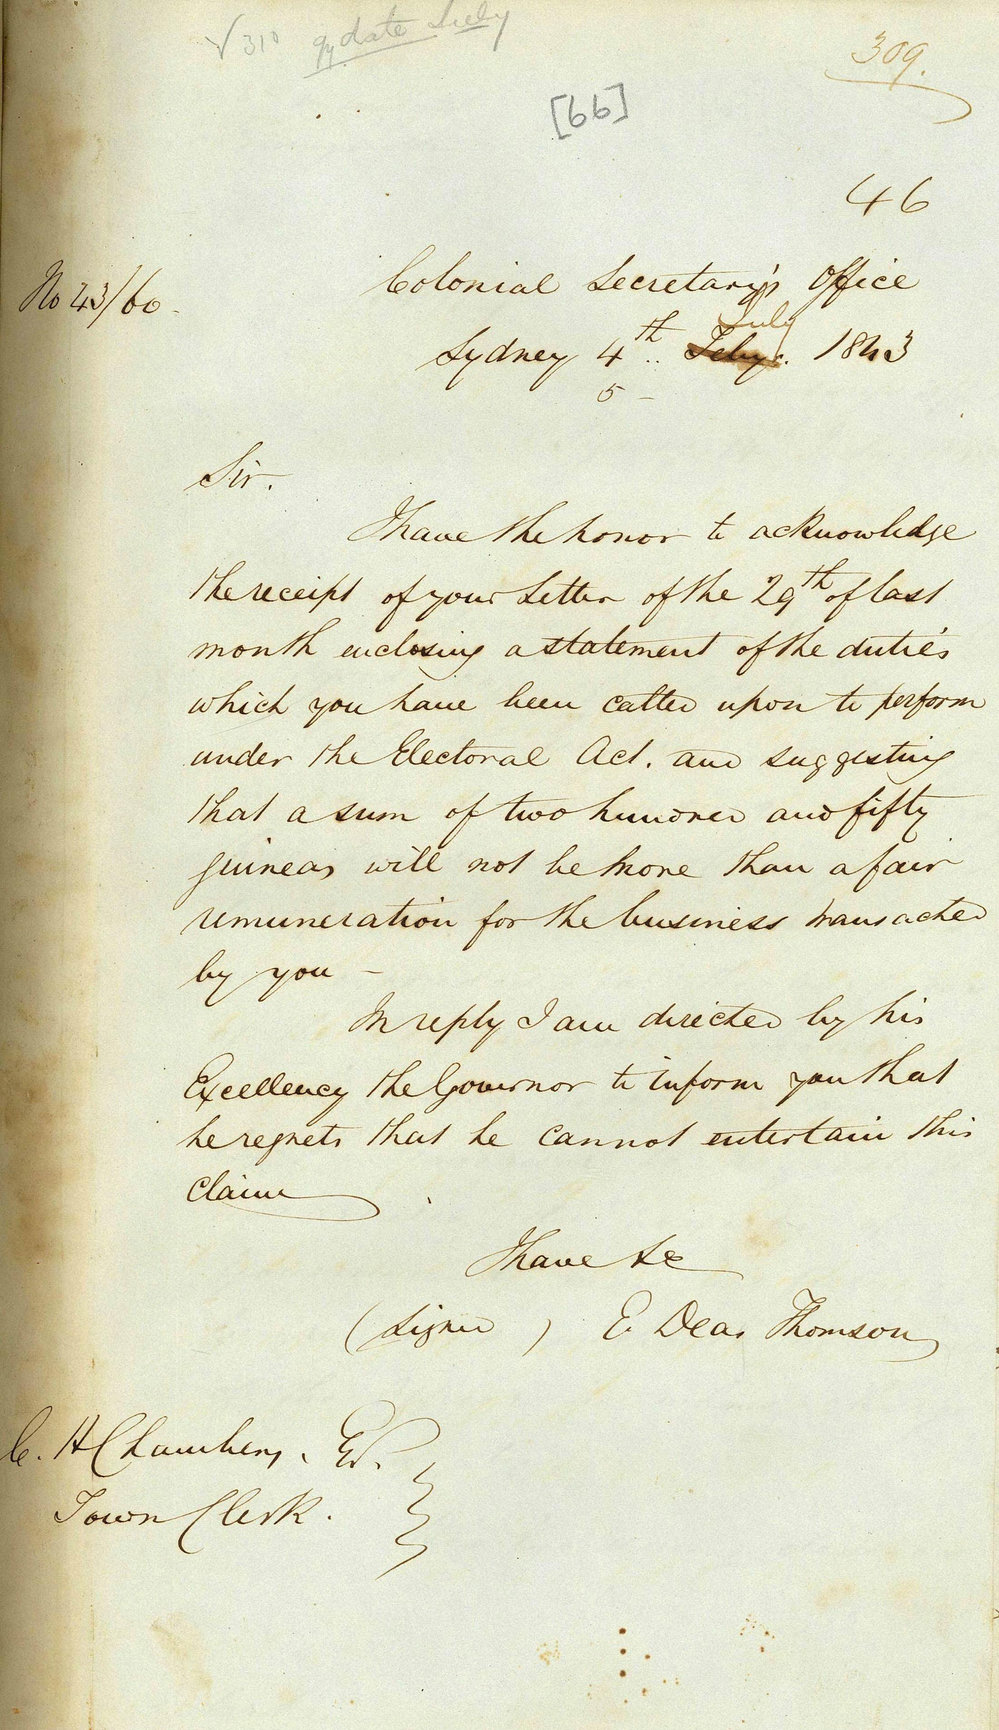 √ 310 qy date July
309.
[66]
46
No 43/60.
Colonial Secretary's Office
July
Sydney 4th.. Feby. 1843
5 -
Sir.
I have the honor to acknowledge
the receipt of your Letter of the 29th of last
month enclosing a statement of the duties
which you have been called upon to perform
under the Electoral Act. and suggesting
that a sum of two hundred and fifty
guineas will not be more than a fair
remuneration for the business transacted
by you -
In reply I am directed by his
Excellency the Governor to inform you that
he regrets that he cannot entertain this
claim
I have &c
(signed) E Deas Thomson
C. H Chambers. Esq.
Town Clerk.